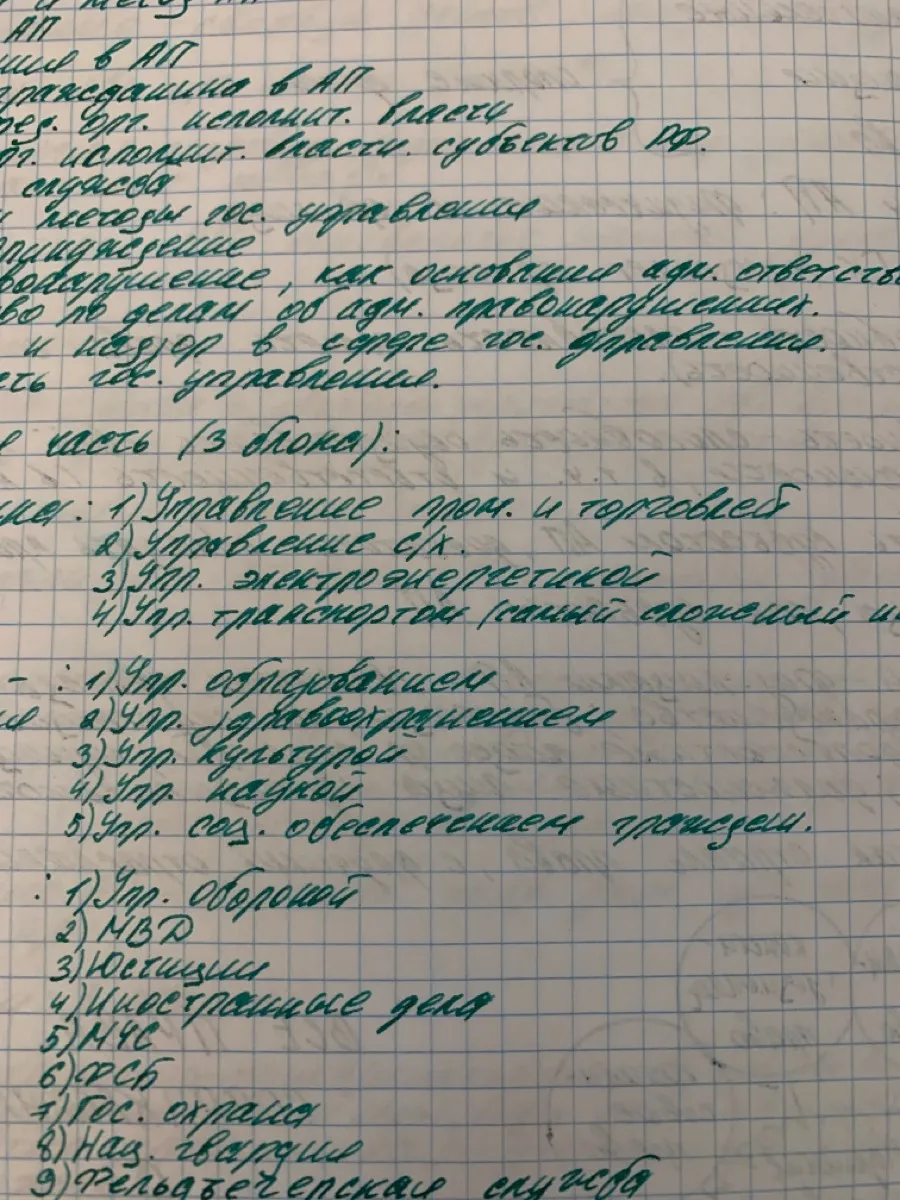 и метод АП
АП
ния в АП
гражданина в АП
ред. орг. исполнит. власти
рг. исполнит. власти. субъектов РФ.
служба
и методы гос. управления
принуждение
вонарушение, как основания адм. ответстве
во по делам об адм. правонарушениях.
и надзор в сфере гос. управления.
сть гос. управления.
я часть (3 блока):
ика: 1) Управление пром. и торговлей
2) Управление с/х.
3) Упр. электроэнергетикой
4) Упр. транспортом (самый сложный и
- : 1) Упр. образованием
ия 2) Упр. здравоохранением
3) Упр. культурой
4) Упр. наукой
5) Упр. соц. обеспечением граждан.
: 1) Упр. обороной
2) МВД
3) Юстиции
4) Иностранные дела
5) МЧС
6) ФСБ
7) Гос. охрана
8) Нац. гвардия
9) Фельдъегерская служба